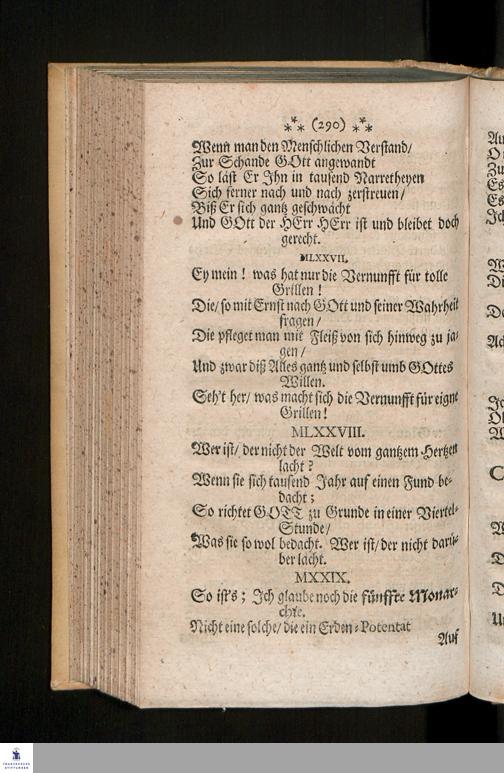 ⁂ (290) ⁂
Wenn man den Menschlichen Verstand/
Zur Schande GOtt angewandt
So läst Er Ihn in tausend Narretheyen
Sich ferner nach und nach zerstreuen/
Biß Er sich gantz geschwächt
Und GOtt der HErr HErr ist und bleibet doch
gerecht.
MLXXVII.
Ey mein! was hat nur die Vernunfft für tolle
Grillen!
Die/ so mit Ernst nach GOtt und seiner Wahrheit
fragen/
Die pfleget man mit Fleiß von sich hinweg zu ja-
gen/
Und zwar diß Alles gantz und selbst umb GOttes
Willen.
Seh't her/ was macht sich die Vernunfft für eigne
Grillen!
MLXXVIII.
Wer ist/ der nicht der Welt vom gantzem Hertzen
lacht?
Wenn sie sich tausend Jahr auf einen Fund be-
dacht;
So richtet GOTT zu Grunde in einer Viertel-
Stunde/
Was sie so wol bedacht. Wer ist/ der nicht darü-
ber lacht.
MXXIX.
So ist's; Ich glaube noch die fünffte Monar-
chie.
Nicht eine solche/ die ein Erden-Potentat
Auf
FRANCKESCHE
STIFTUNGEN